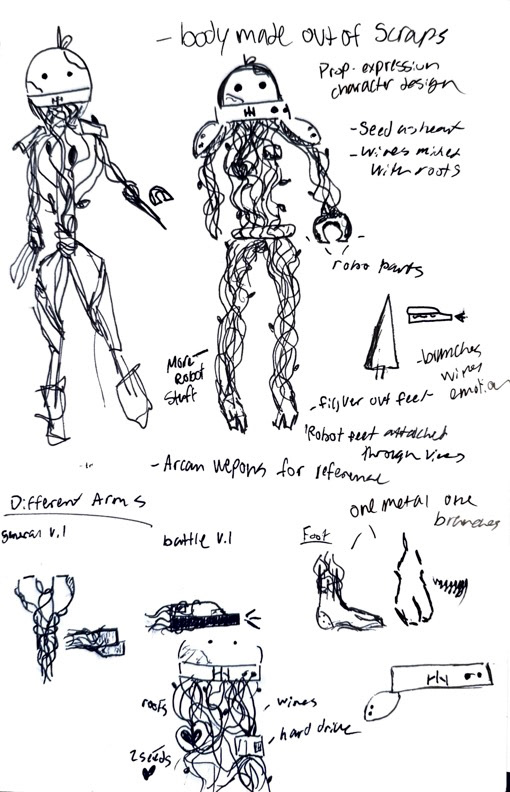 - body made out of scraps
Prop. expression
character design
- Seed as heart
- Wires mixed
with roots
robo parts
- brunches
wires
emotion
More
Robot
stuff
- figver out feet
Robot feet attached
through Vines
- Arcan wepons for reference
Different Arms
general v.1
battle v.1
one metal one
branches
Foot
roots
wires
hard drive
2 seeds